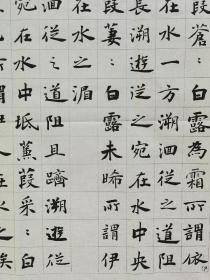 葭蒼：白露為霜所謂依
在水一方溯洄從之道阻
長溯遊從之宛在水中央
葭萋：白露未晞所謂伊
在水之湄
洄從之道阻且躋溯遊從
宛在水中坻蒹葭采：白
在水之涘